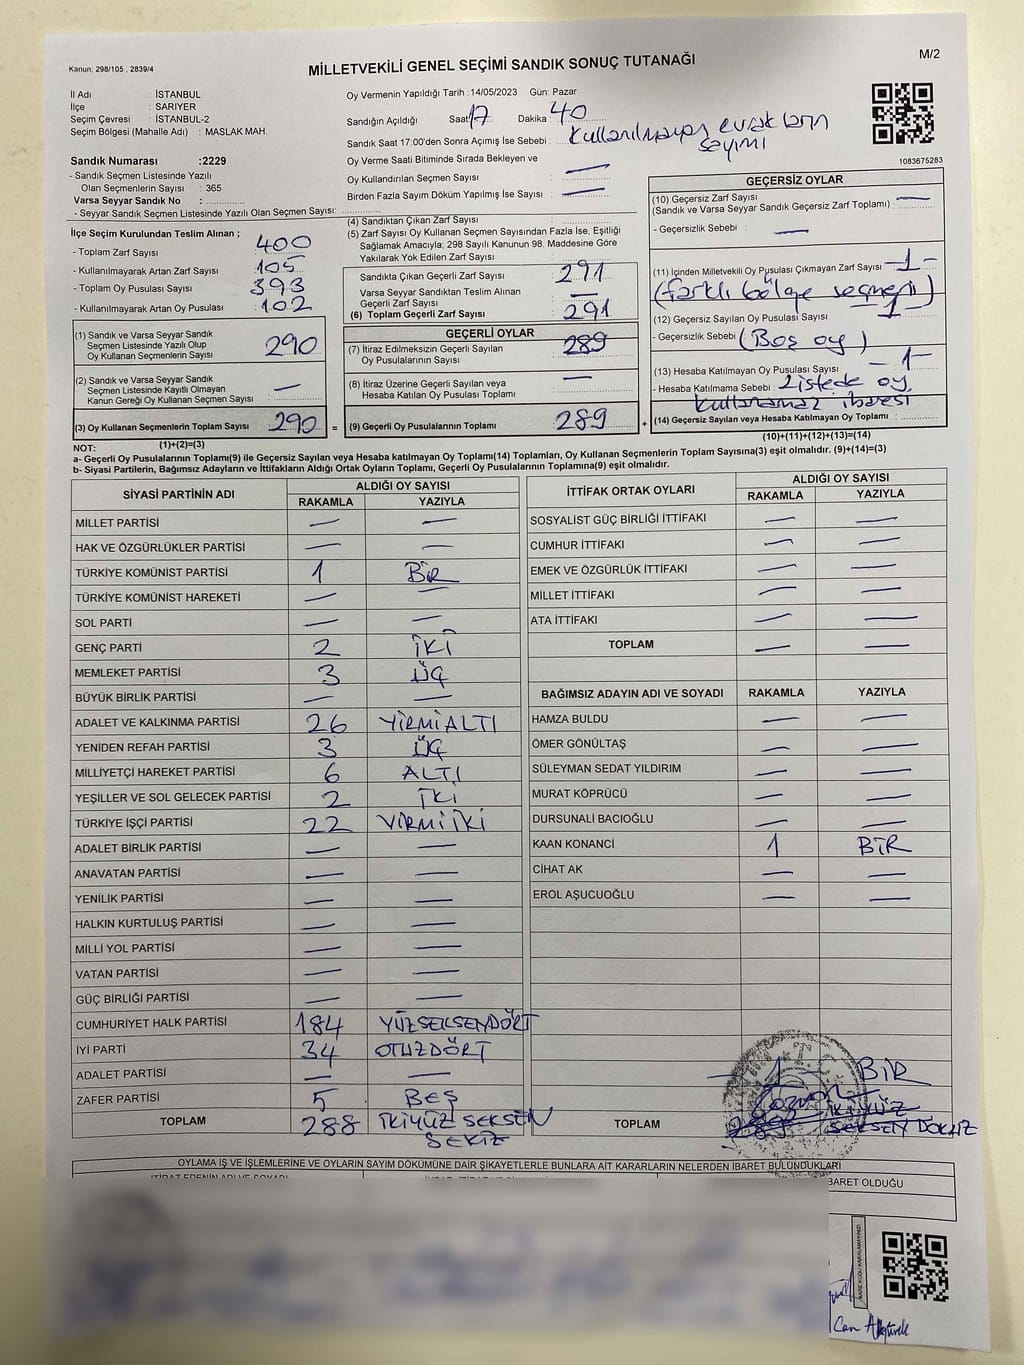 Kanun: 298/105 , 2839/4
MİLLETVEKİLİ GENEL SEÇİMİ SANDIK SONUÇ TUTANAĞI
M/2
İl Adı : İSTANBUL
İlçe : SARIYER
Seçim Çevresi : İSTANBUL-2
Seçim Bölgesi (Mahalle Adı) : MASLAK MAH.
Oy Vermenin Yapıldığı Tarih :14/05/2023 Gün: Pazar
Sandığın Açıldığı Saat: 17 Dakika : 40
Sandık Saat 17:00'den Sonra Açımış İse Sebebi : Kullanılmayan evrakların sayımı
Oy Verme Saati Bitiminde Sırada Bekleyen ve
Oy Kullandırılan Seçmen Sayısı : —
Birden Fazla Sayım Döküm Yapılmış İse Sayısı : —
1083675283
Sandık Numarası :2229
- Sandık Seçmen Listesinde Yazılı
Olan Seçmenlerin Sayısı : 365
Varsa Seyyar Sandık No :
- Seyyar Sandık Seçmen Listesinde Yazılı Olan Seçmen Sayısı:
İlçe Seçim Kurulundan Teslim Alınan ;
- Toplam Zarf Sayısı : 400
- Kullanılmayarak Artan Zarf Sayısı : 105
- Toplam Oy Pusulası Sayısı : 393
- Kullanılmayarak Artan Oy Pusulası : 102
(1) Sandık ve Varsa Seyyar Sandık
Seçmen Listesinde Yazılı Olup
Oy Kullanan Seçmenlerin Sayısı : 290
(2) Sandık ve Varsa Seyyar Sandık
Seçmen Listesinde Kayıtlı Olmayan
Kanun Gereği Oy Kullanan Seçmen Sayısı : —
(3) Oy Kullanan Seçmenlerin Toplam Sayısı : 290 =
(1)+(2)=(3)
(4) Sandıktan Çıkan Zarf Sayısı :
(5) Zarf Sayısı Oy Kullanan Seçmen Sayısından Fazla İse, Eşitliği
Sağlamak Amacıyla; 298 Sayılı Kanunun 98. Maddesine Göre
Yakılarak Yok Edilen Zarf Sayısı :
Sandıkta Çıkan Geçerli Zarf Sayısı : 291
Varsa Seyyar Sandıktan Teslim Alınan
Geçerli Zarf Sayısı : —
(6) Toplam Geçerli Zarf Sayısı : 291
GEÇERLİ OYLAR
(7) İtiraz Edilmeksizin Geçerli Sayılan
Oy Pusulalarının Sayısı : 289
(8) İtiraz Üzerine Geçerli Sayılan veya
Hesaba Katılan Oy Pusulası Toplamı : —
(9) Geçerli Oy Pusulalarının Toplamı : 289 +
GEÇERSİZ OYLAR
(10) Geçersiz Zarf Sayısı
(Sandık ve Varsa Seyyar Sandık Geçersiz Zarf Toplamı) : —
- Geçersizlik Sebebi : —
(11) İçinden Milletvekili Oy Pusulası Çıkmayan Zarf Sayısı : -1-
(farklı bölge seçmeni)
(12) Geçersiz Sayılan Oy Pusulası Sayısı : -1-
- Geçersizlik Sebebi : (Boş oy)
(13) Hesaba Katılmayan Oy Pusulası Sayısı : -1-
- Hesaba Katılmama Sebebi : Listede oy
kullanamaz ibaresi
(14) Geçersiz Sayılan veya Hesaba Katılmayan Oy Toplamı :
(10)+(11)+(12)+(13)=(14)
NOT:
a- Geçerli Oy Pusulalarının Toplamı(9) ile Geçersiz Sayılan veya Hesaba katılmayan Oy Toplamı(14) Toplamları, Oy Kullanan Seçmenlerin Toplam Sayısına(3) eşit olmalıdır. (9)+(14)=(3)
b- Siyasi Partilerin, Bağımsız Adayların ve İttifakların Aldığı Ortak Oyların Toplamı, Geçerli Oy Pusulalarının Toplamına(9) eşit olmalıdır.
SİYASİ PARTİNİN ADI ALDIĞI OY SAYISI
RAKAMLA YAZIYLA
MİLLET PARTİSİ — —
HAK VE ÖZGÜRLÜKLER PARTİSİ — —
TÜRKİYE KOMÜNİST PARTİSİ 1 BİR
TÜRKİYE KOMÜNİST HAREKETİ — —
SOL PARTİ — —
GENÇ PARTİ 2 İKİ
MEMLEKET PARTİSİ 3 ÜÇ
BÜYÜK BİRLİK PARTİSİ — —
ADALET VE KALKINMA PARTİSİ 26 YİRMİALTI
YENİDEN REFAH PARTİSİ 3 ÜÇ
MİLLİYETÇİ HAREKET PARTİSİ 6 ALTI
YEŞİLLER VE SOL GELECEK PARTİSİ 2 İKİ
TÜRKİYE İŞÇİ PARTİSİ 22 YİRMİİKİ
ADALET BİRLİK PARTİSİ — —
ANAVATAN PARTİSİ — —
YENİLİK PARTİSİ — —
HALKIN KURTULUŞ PARTİSİ — —
MİLLİ YOL PARTİSİ — —
VATAN PARTİSİ — —
GÜÇ BİRLİĞİ PARTİSİ — —
CUMHURİYET HALK PARTİSİ 184 YÜZSEKSENDÖRT
İYİ PARTİ 34 OTUZDÖRT
ADALET PARTİSİ — —
ZAFER PARTİSİ 5 BEŞ
TOPLAM 288 İKİYÜZ SEKSEN SEKİZ
İTTİFAK ORTAK OYLARI ALDIĞI OY SAYISI
RAKAMLA YAZIYLA
SOSYALİST GÜÇ BİRLİĞİ İTTİFAKI — —
CUMHUR İTTİFAKI — —
EMEK VE ÖZGÜRLÜK İTTİFAKI — —
MİLLET İTTİFAKI — —
ATA İTTİFAKI — —
TOPLAM — —
BAĞIMSIZ ADAYIN ADI VE SOYADI RAKAMLA YAZIYLA
HAMZA BULDU — —
ÖMER GÖNÜLTAŞ — —
SÜLEYMAN SEDAT YILDIRIM — —
MURAT KÖPRÜCÜ — —
DURSUNALİ BACIOĞLU — —
KAAN KONANCİ 1 BİR
CİHAT AK — —
EROL AŞUCUOĞLU — —
-1- BİR
TOPLAM 289 İKİYÜZ SEKSEN DOKUZ
OYLAMA İŞ VE İŞLEMLERİNE VE OYLARIN SAYIM DÖKÜMÜNE DAİR ŞİKAYETLERLE BUNLARA AİT KARARLARIN NELERDEN İBARET BULUNDUKLARI
İTİRAZ EDENİN ADI VE SOYADI
BARET OLDUĞU
KARE KODU KARALAMAYINIZ!
Can